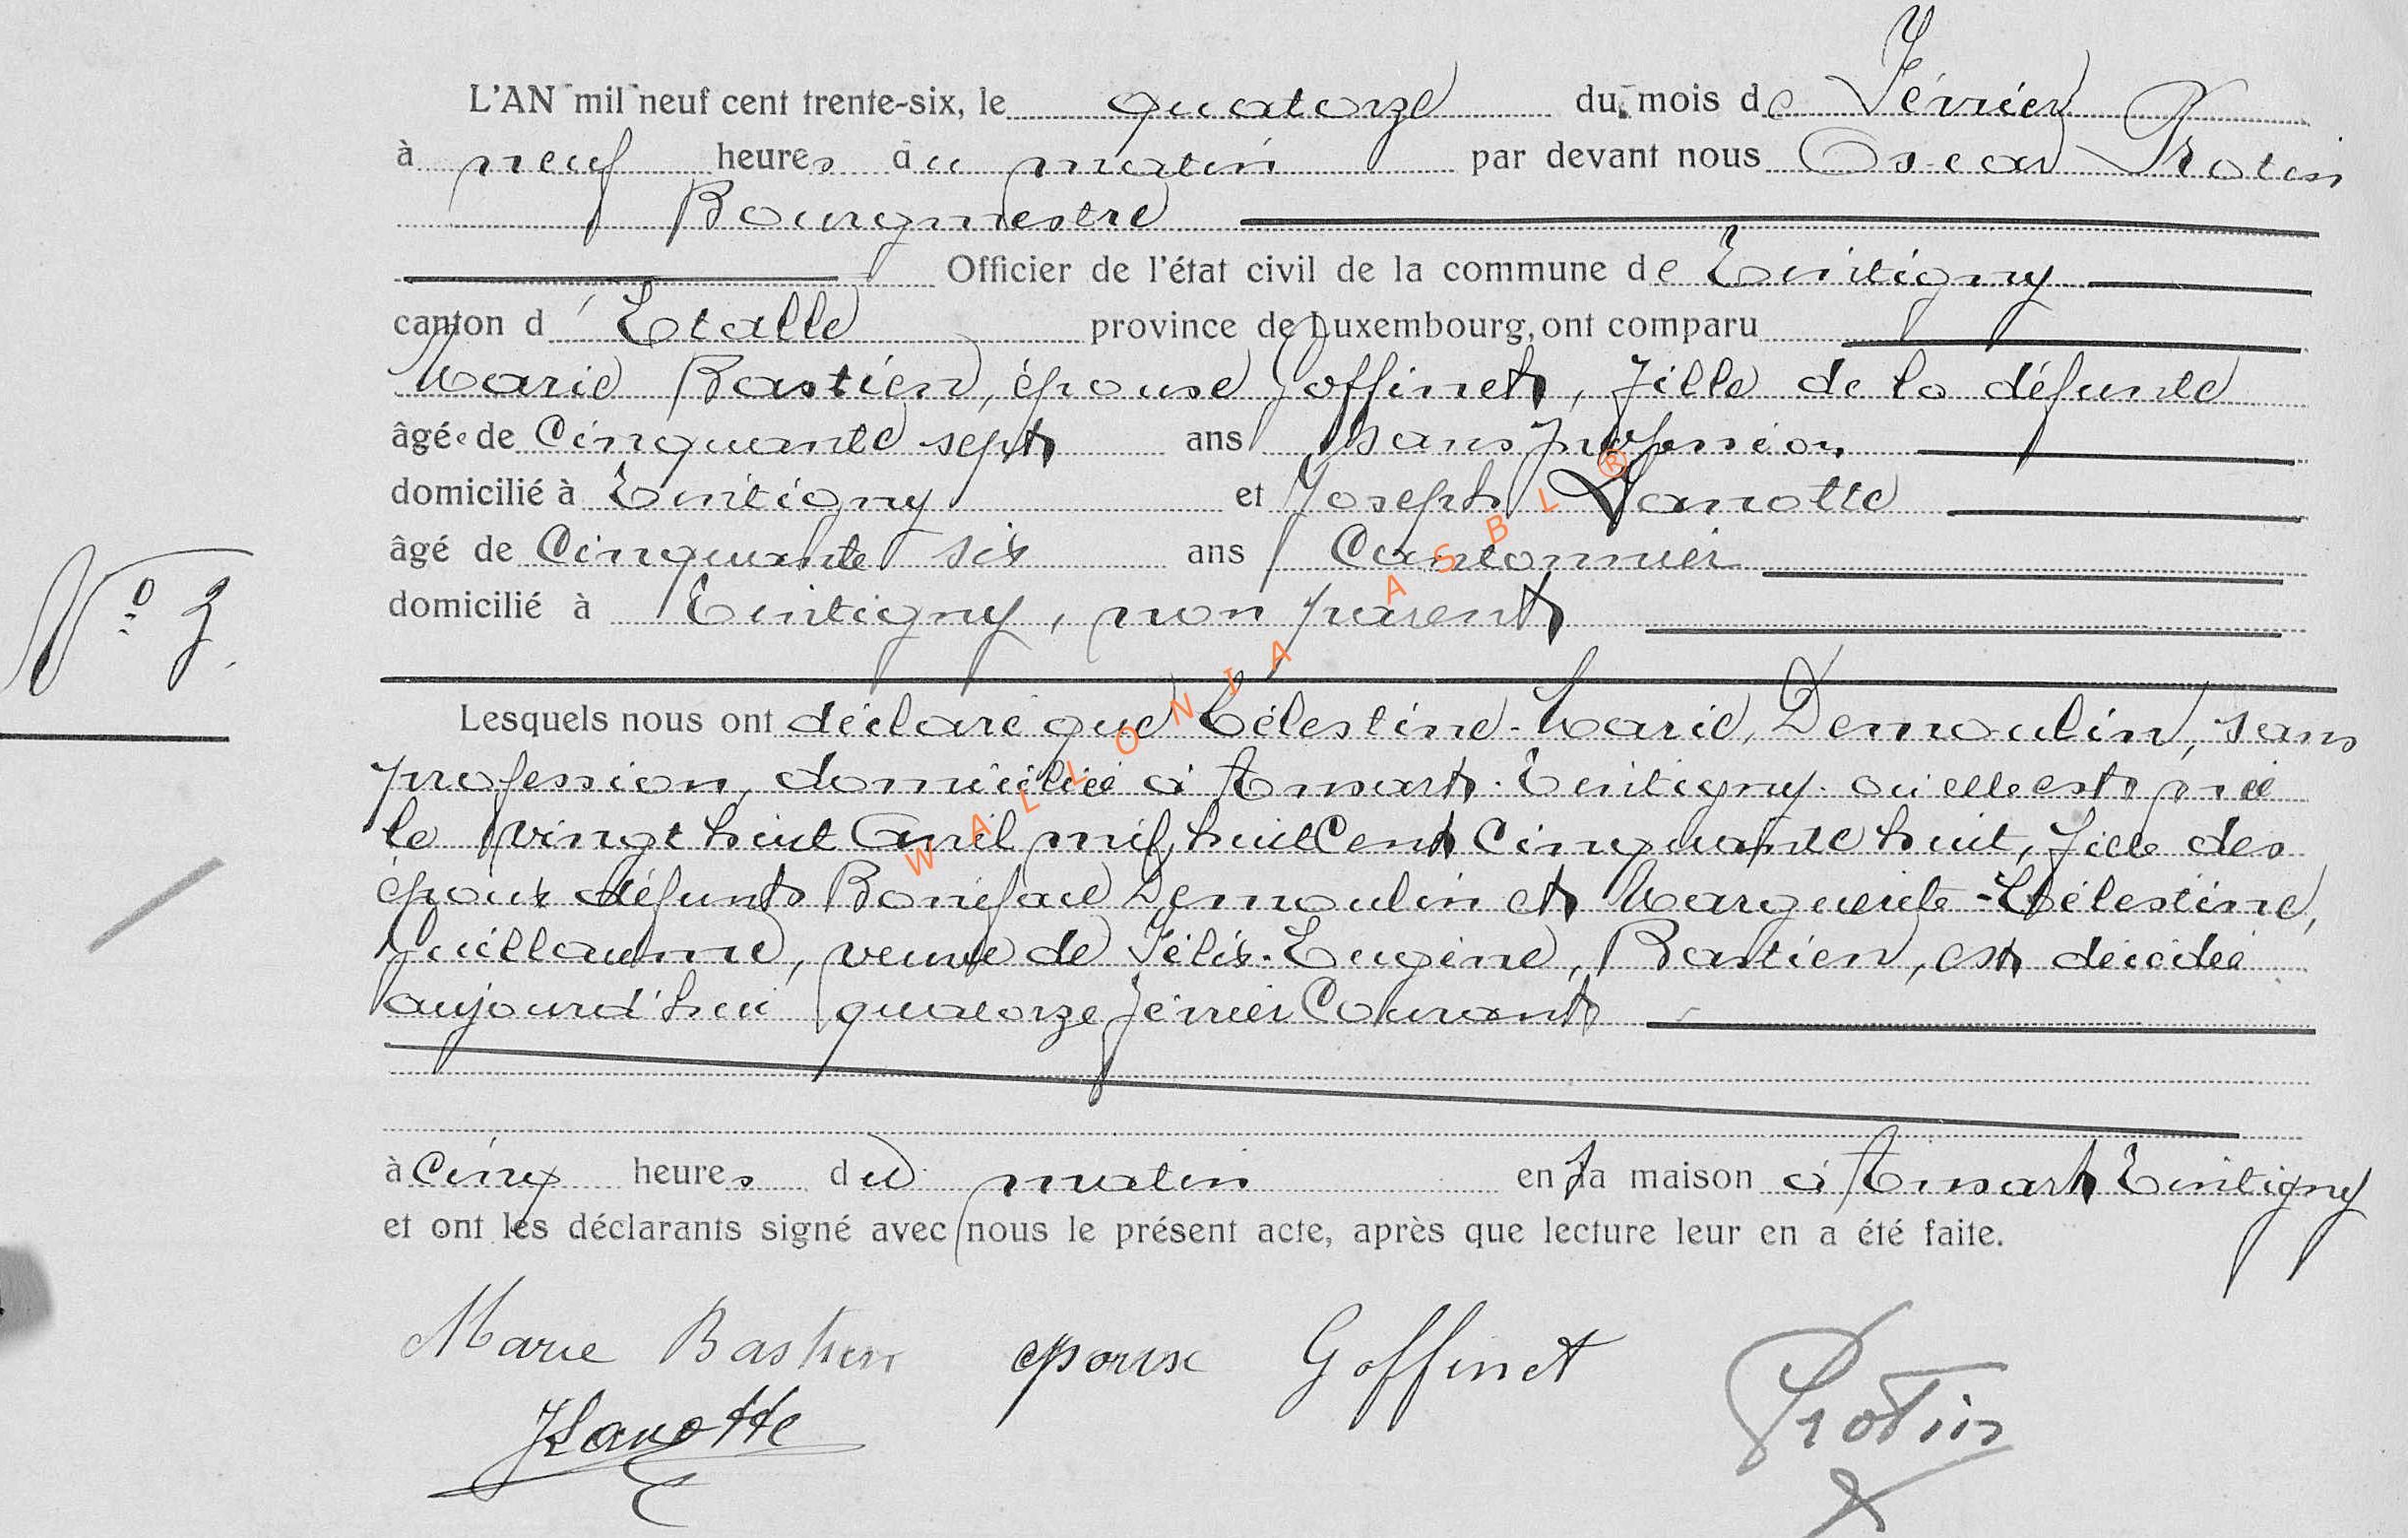 L'AN mil neuf cent trente-six, le quatorze du mois de Février
à neuf heures du matin par devant nous Oscar Protin
Bourgmestre
Officier de l'état civil de la commune de Tintigny
canton d'Etalle province de Luxembourg, ont comparu
Marie Bastien, épouse Goffinet, fille de la défunte
âgée de Cinquante sept ans sans profession
domicilié à Tintigny et Joseph Lanotte
âgé de Cinquante six ans Cantonnier
domicilié à Tintigny, non parent
N° 3.
Lesquels nous ont déclaré que Célestine-Marie, Demoulin, sans
profession, domiciliée à Ansart-Tintigny où elle est née
le vingt huit Avril mil huit Cent Cinquante huit, fille des
époux défunts Boniface Demoulin et Marguerite-Célestine,
Guillaume, veuve de Félix-Eugène, Bastien, est décédée
aujourd'hui quatorze février Courant
à Cinq heures du matin en sa maison à Ansart Tintigny
et ont les déclarants signé avec nous le présent acte, après que lecture leur en a été faite.
Marie Bastien épouse Goffinet
JLanotte
Protin
WALLONIA ASBL ®